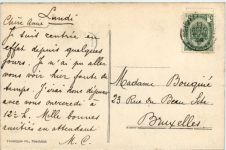 Lundi
Chère Anna
Je suis rentrée en
effet depuis quelques
jours. Je n'ai pu aller
vous voir hier faute de
temps. J'irai donc déjeuner
avec vous mercredi à
12½ h. Mille bonnes
amitiés en attendant
M. C.
Madame Bouquié
23 Rue du Beau Site
Bruxelles